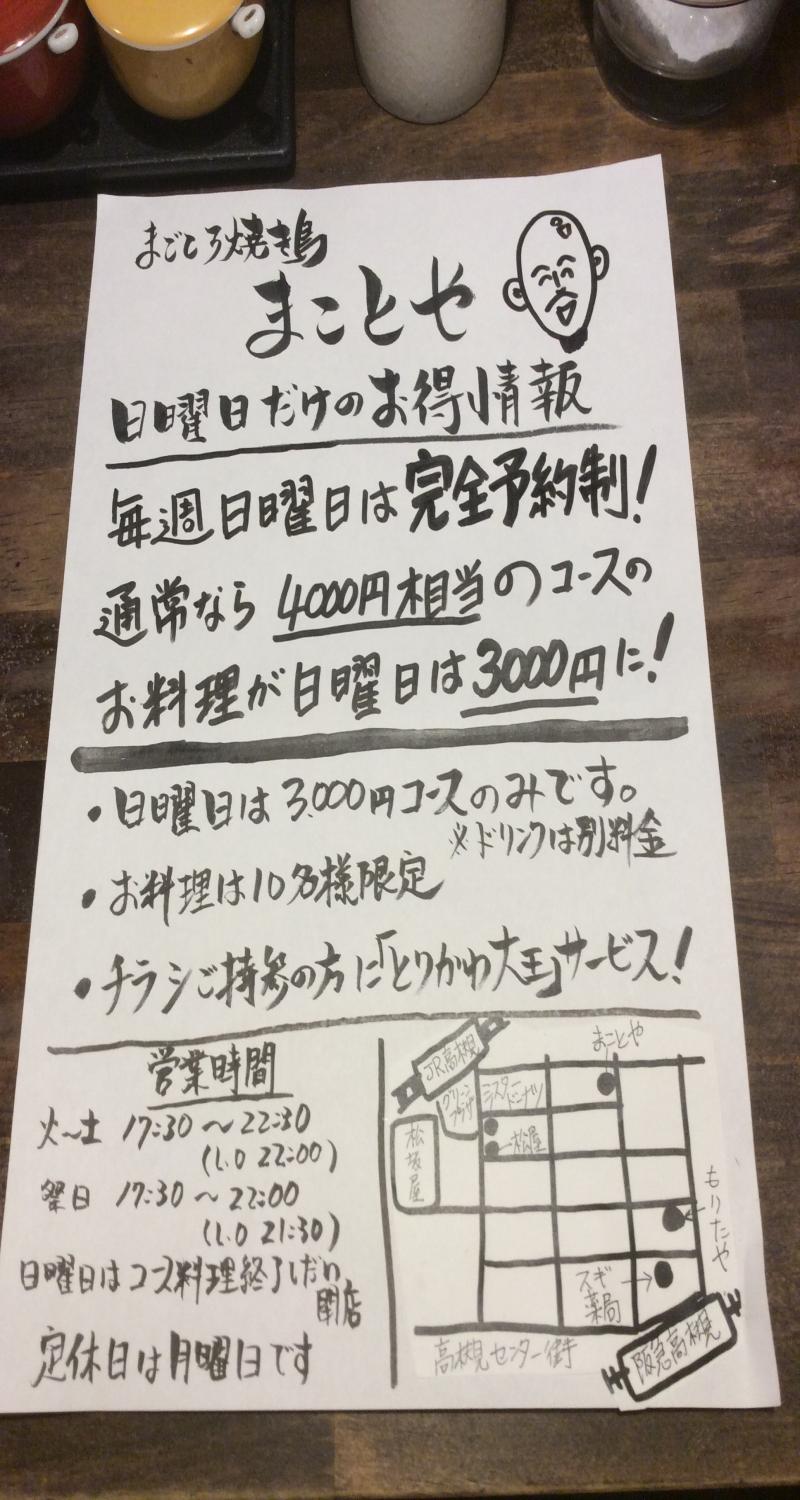 まごころ焼き鳥
まことや
日曜日だけのお得情報
毎週日曜日は完全予約制!
通常なら 4000円相当のコースの
お料理が日曜日は3000円に!
・日曜日は3,000円コースのみです。
※ドリンクは別料金
・お料理は10名様限定
・チラシご持参の方に「とりかわ大王」サービス!
営業時間
火〜土 17:30〜22:30
(L.O 22:00)
祭日 17:30〜22:00
(L.O 21:30)
日曜日はコース料理終了しだい
閉店
定休日は月曜日です
まことや
JR高槻
グリーン
プラザ
ミスター
ドーナツ
松坂屋
松屋
もりたや
スギ
薬局
阪急高槻
高槻センター街